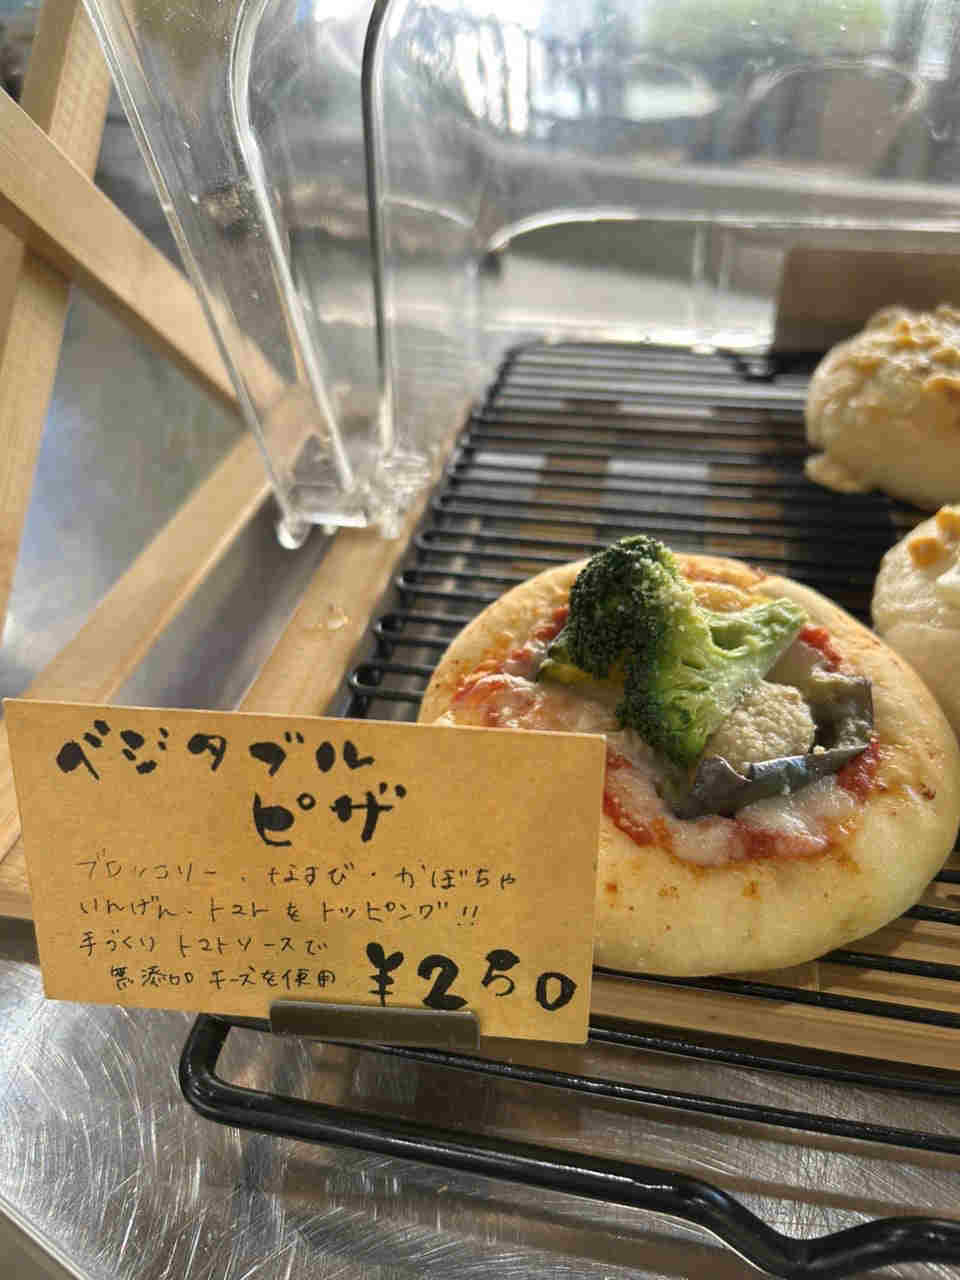 ベジタブル
ピザ
ブロッコリー、なすび・かぼちゃ
いんげん、トマトをトッピング!!
手づくりトマトソースで
無添加チーズを使用
¥250